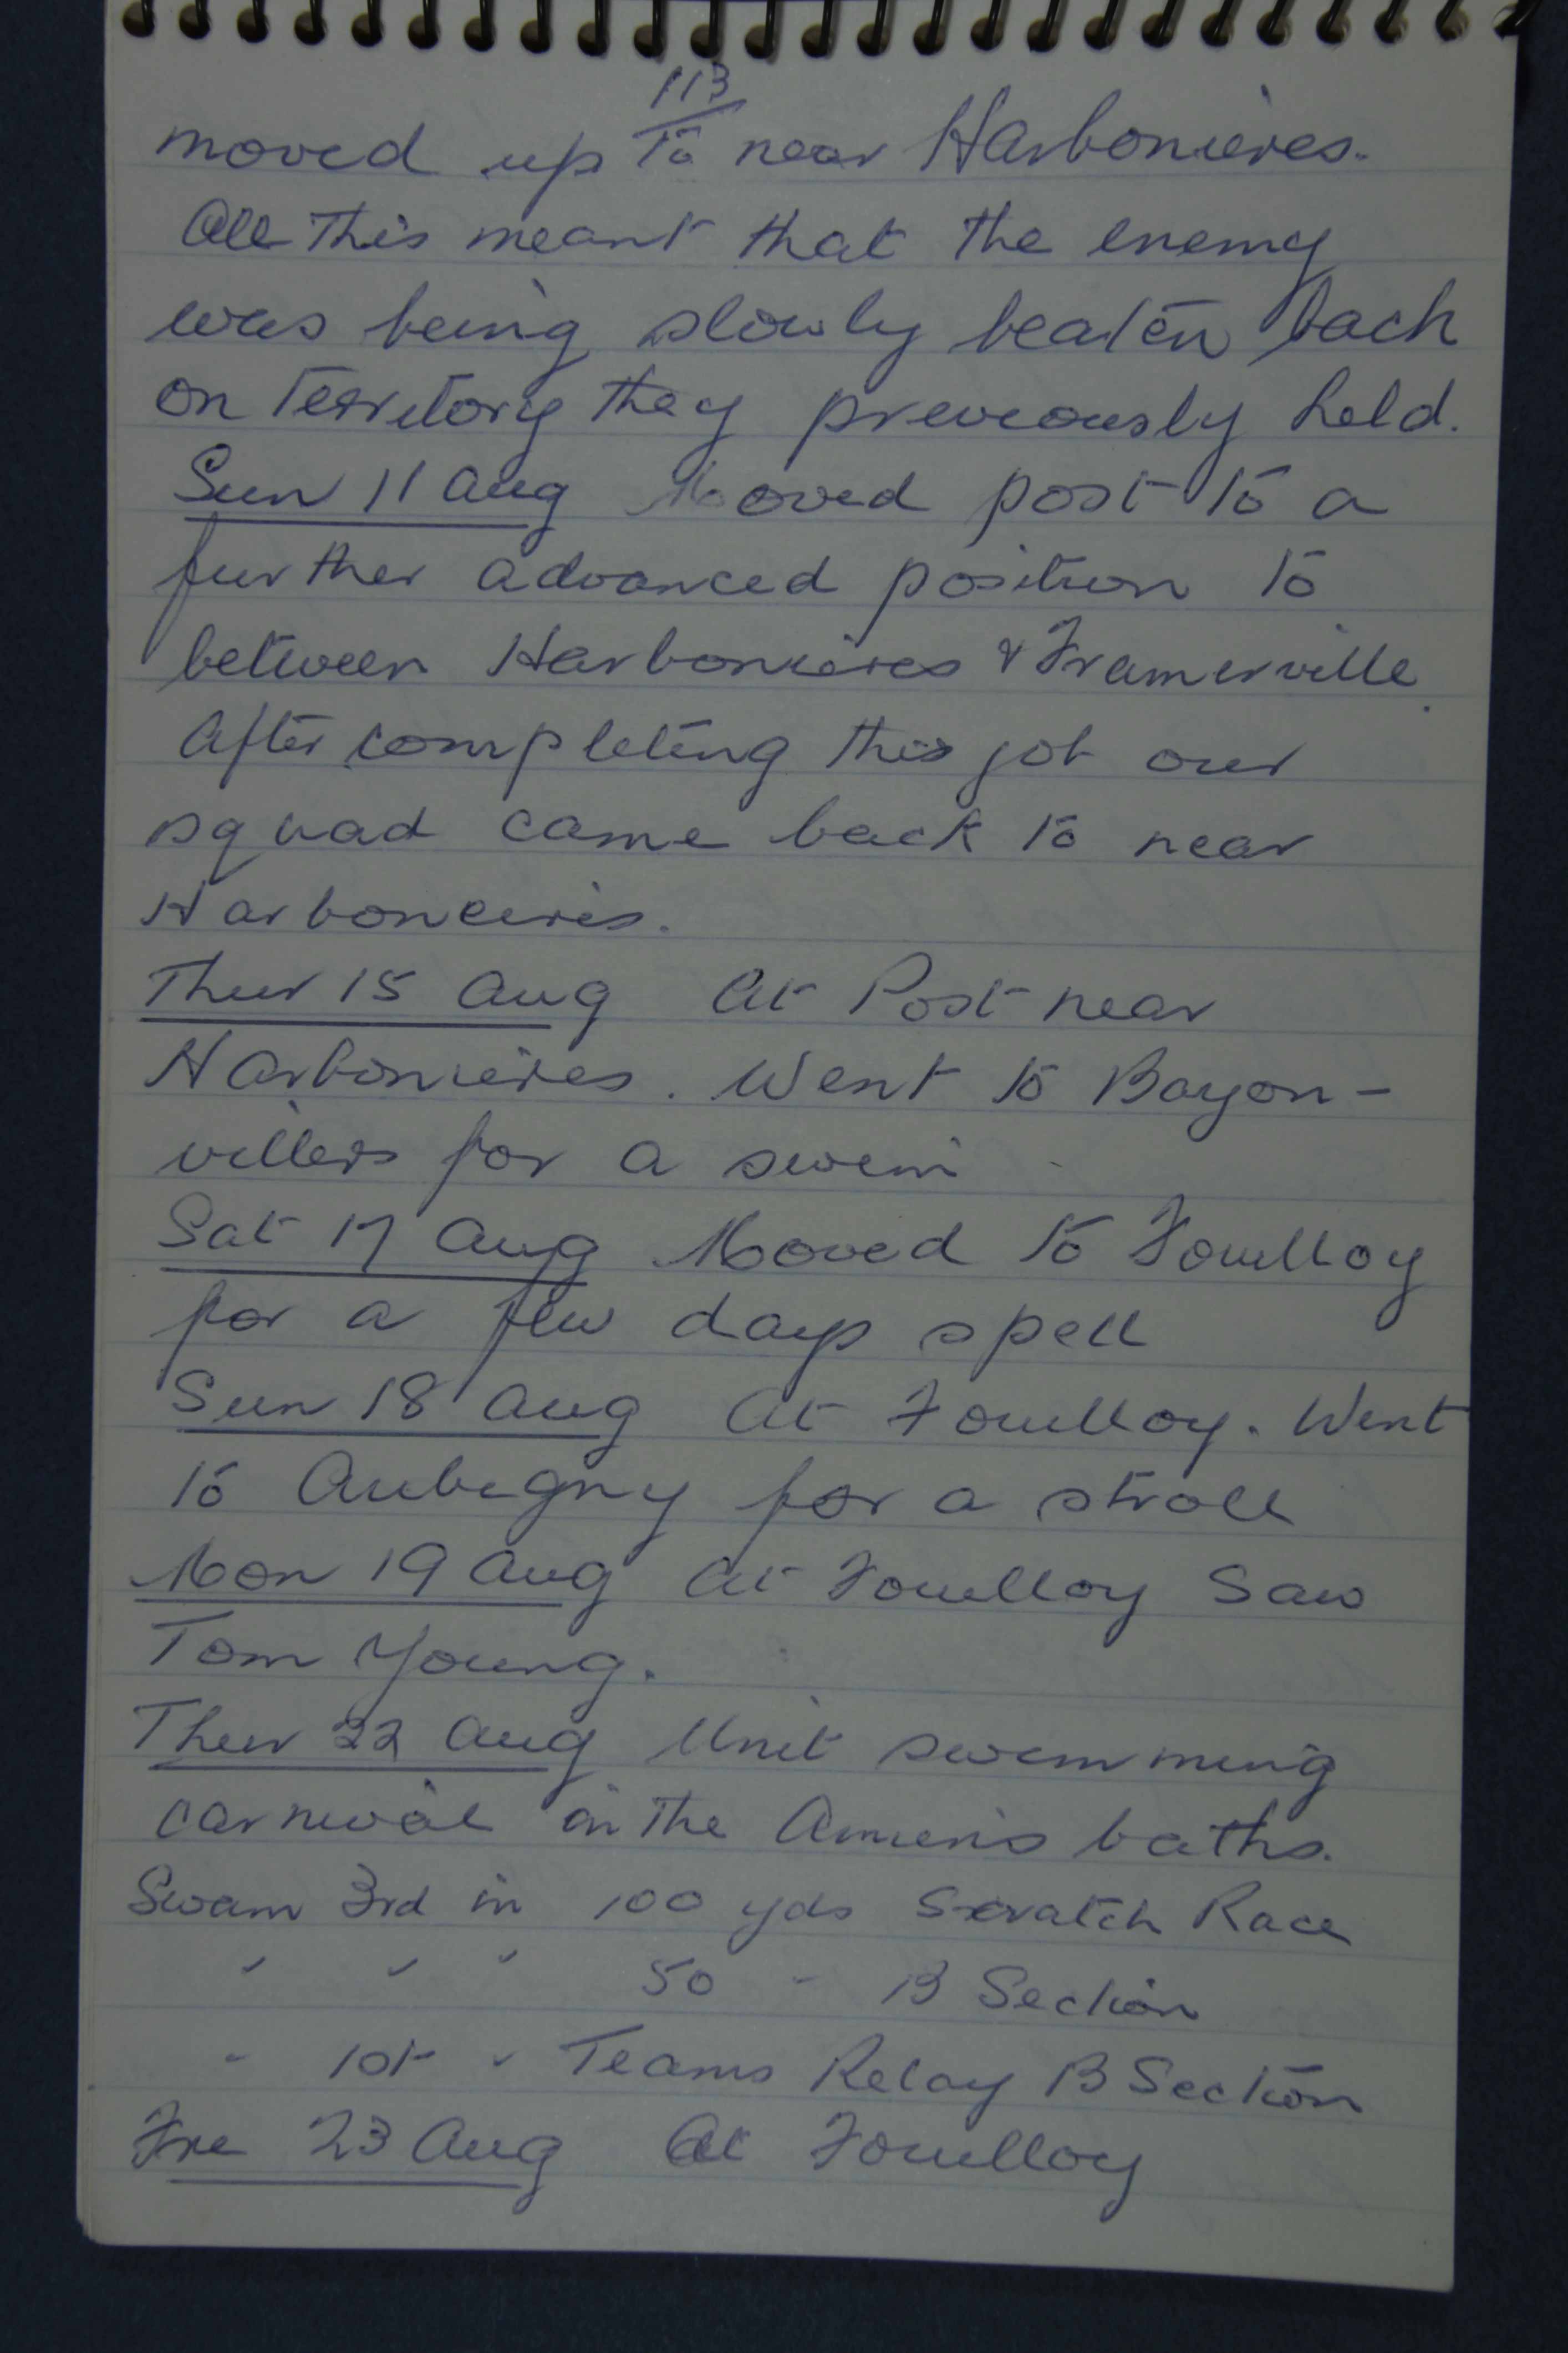 113
moved up to near Harbonieres.
All this meant that the enemy
was being slowly beaten back
on territory they previously held.
Sun 11 Aug Moved post to a
further advanced position to
between Harbonieres & Framerville.
After completing this job our
squad came back to near
Harbonieres.
Thur 15 Aug At Post near
Harbonieres. Went to Bayon-
villers for a swim
Sat 17 Aug Moved to Fouilloy
for a few days spell
Sun 18 Aug At Fouilloy. Went
to Aubigny for a stroll
Mon 19 Aug At Fouilloy Saw
Tom Young.
Thur 22 Aug Unit swimming
carnival in the Amiens baths.
Swam 3rd in 100 yds Scratch Race
" " " 50 " B Section
" 1st " Teams Relay B Section
Fri 23 Aug At Fouilloy